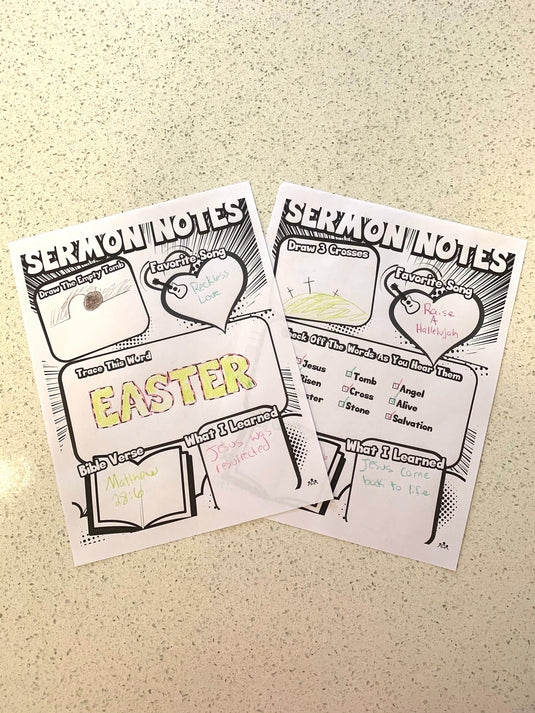 SERMON NOTES
Draw The Empty Tomb
Favorite Song
Reckless
Love
Trace This Word
EASTER
Bible Verse
Matthew
28:6
What I Learned
Jesus was
resurrected
SERMON NOTES
Draw 3 Crosses
Favorite Song
Raise
A
Hallelujah
eck Off The Words As You Hear Them
Jesus
Tomb
Angel
Risen
Cross
Alive
ster
Stone
Salvation
What I Learned
Jesus came
back to life